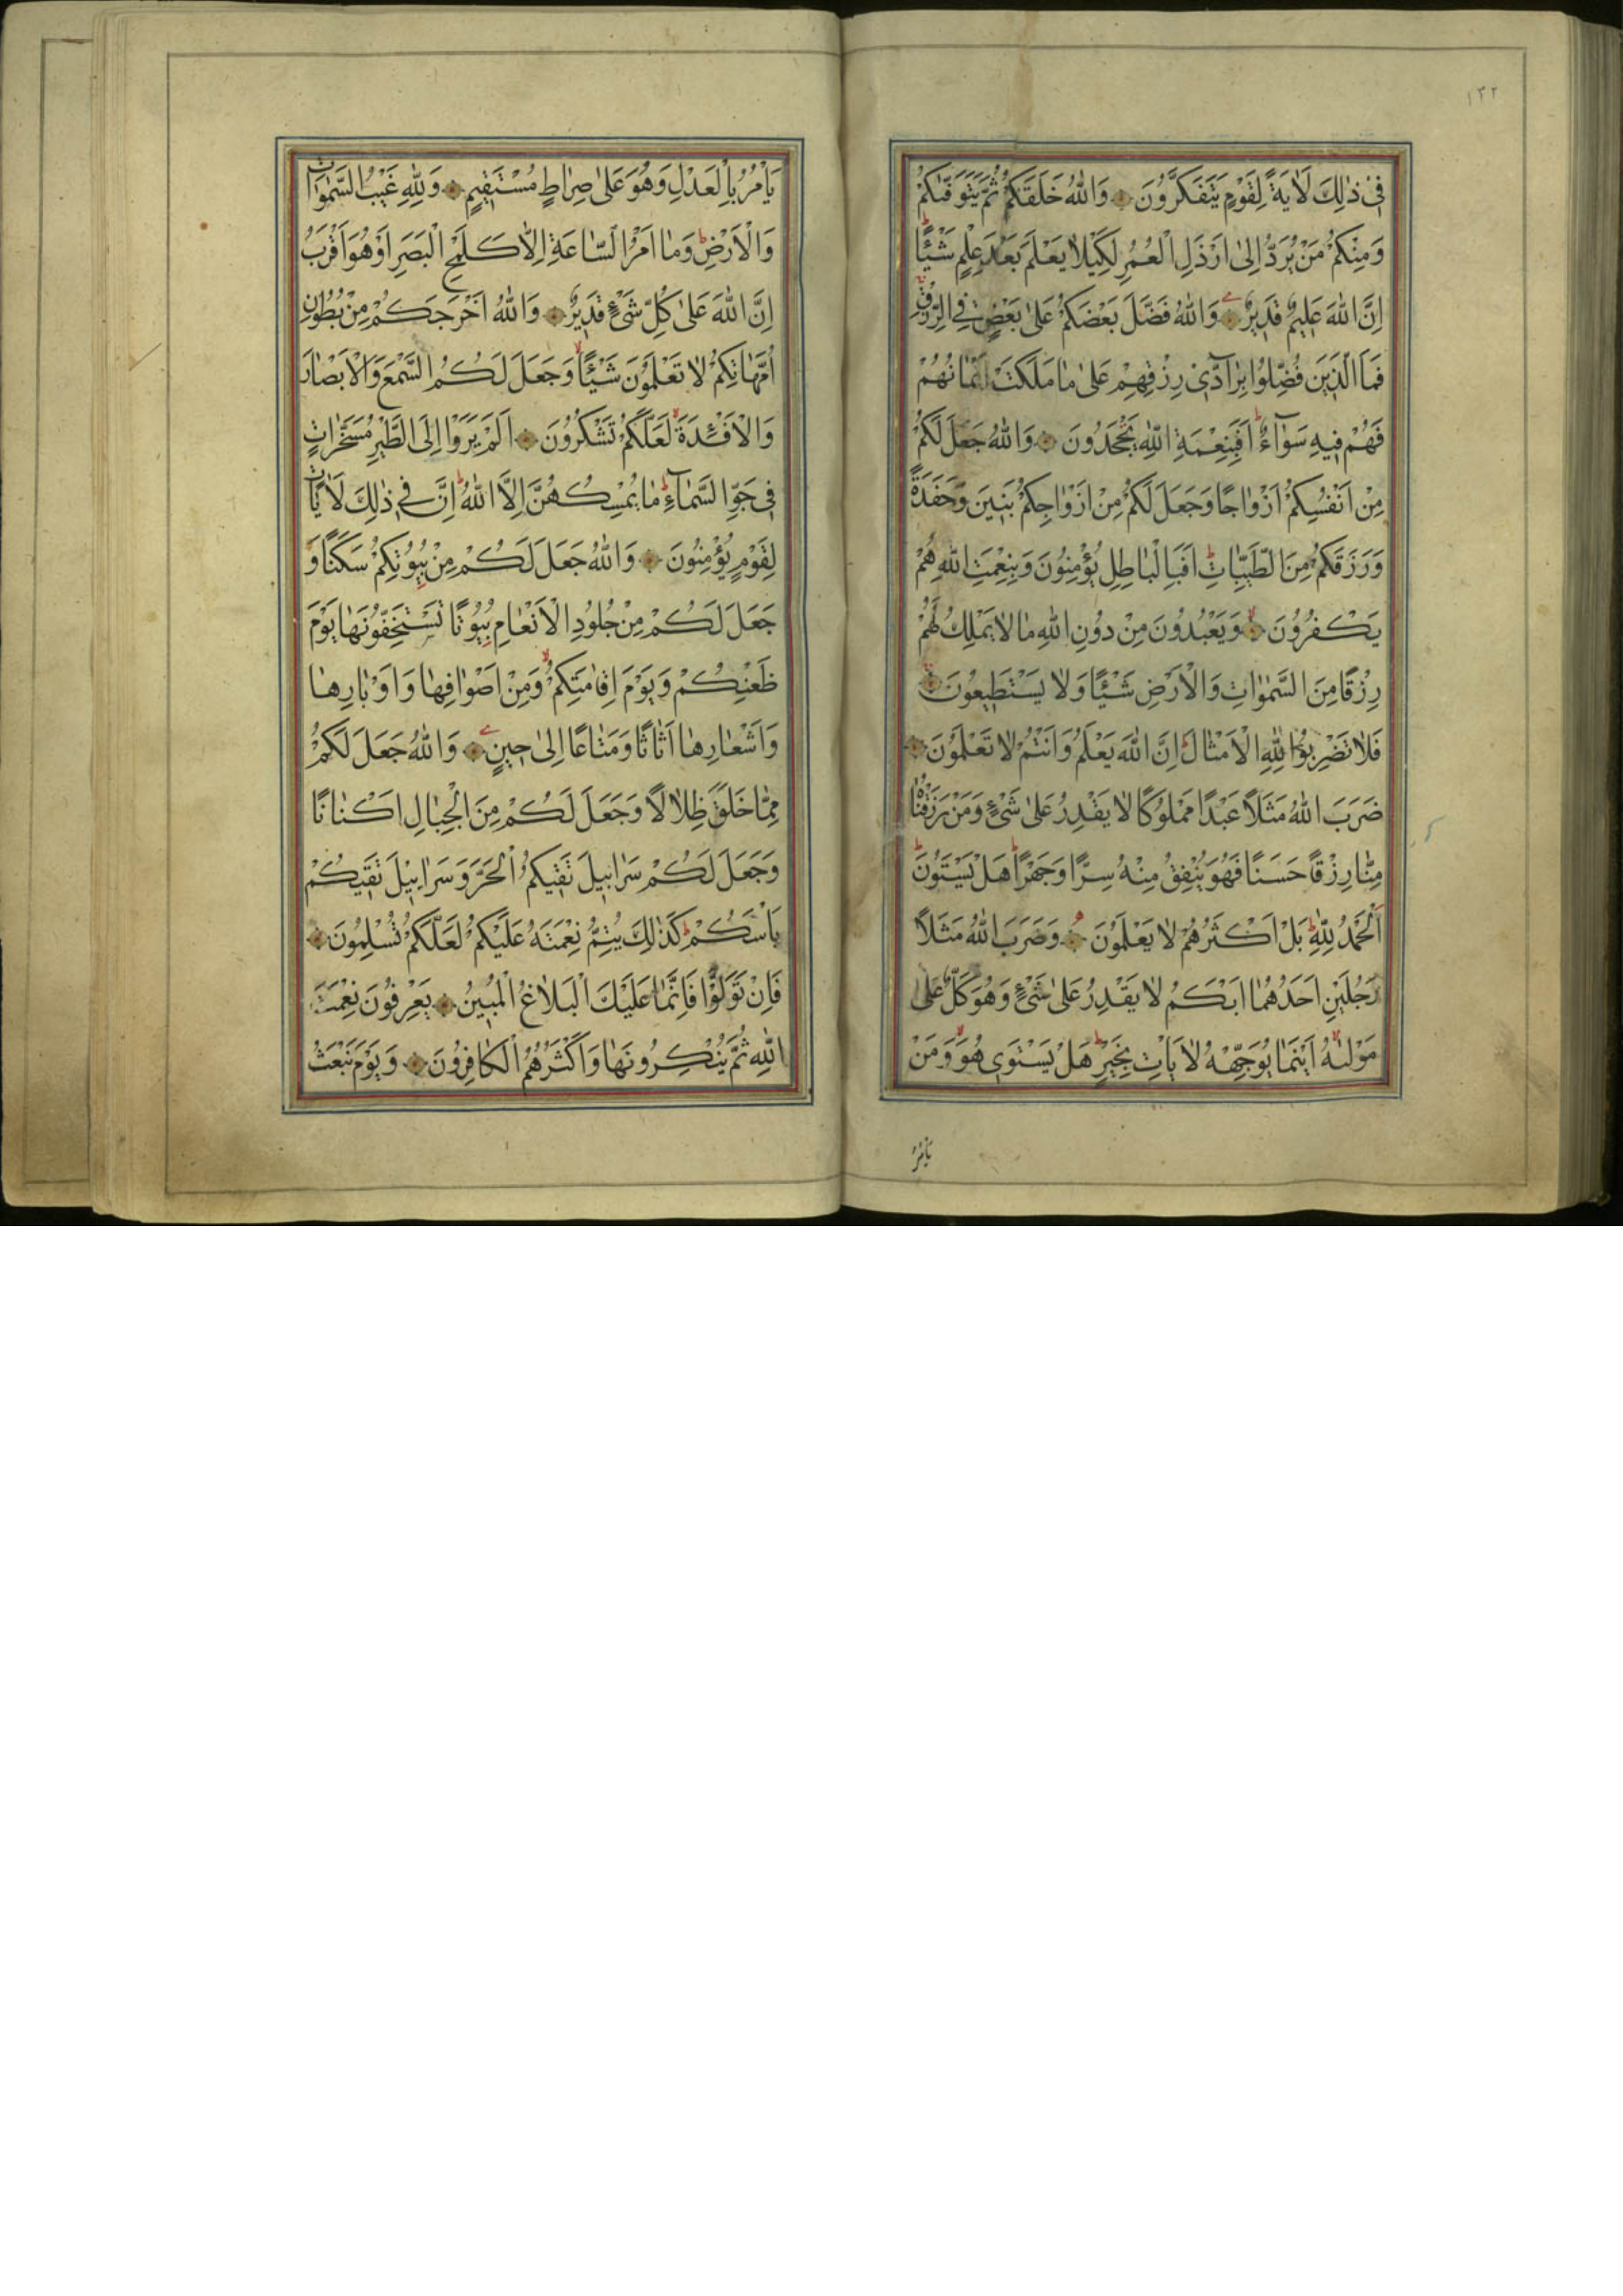 ١٣٢
فِي ذٰلِكَ لَاٰيَةً لِقَوْمٍ يَتَفَكَّرُونَ وَاللّٰهُ خَلَقَكُمْ ثُمَّ يَتَوَفّٰيكُمْ
وَمِنْكُمْ مَنْ يُرَدُّ اِلٰى اَرْذَلِ الْعُمُرِ لِكَيْلَا يَعْلَمَ بَعْدَ عِلْمٍ شَيْئًا
اِنَّ اللّٰهَ عَلِيمٌ قَدِيرٌ وَاللّٰهُ فَضَّلَ بَعْضَكُمْ عَلٰى بَعْضٍ فِي الرِّزْقِ
فَمَا الَّذِينَ فُضِّلُوا بِرَآدِّي رِزْقِهِمْ عَلٰى مَا مَلَكَتْ اَيْمَانُهُمْ
فَهُمْ فِيهِ سَوَآءٌ اَفَبِنِعْمَةِ اللّٰهِ يَجْحَدُونَ وَاللّٰهُ جَعَلَ لَكُمْ
مِنْ اَنْفُسِكُمْ اَزْوَاجًا وَجَعَلَ لَكُمْ مِنْ اَزْوَاجِكُمْ بَنِينَ وَحَفَدَةً
وَرَزَقَكُمْ مِنَ الطَّيِّبَاتِ اَفَبِالْبَاطِلِ يُؤْمِنُونَ وَبِنِعْمَتِ اللّٰهِ هُمْ
يَكْفُرُونَ وَيَعْبُدُونَ مِنْ دُونِ اللّٰهِ مَا لَا يَمْلِكُ لَهُمْ
رِزْقًا مِنَ السَّمٰوَاتِ وَالْاَرْضِ شَيْئًا وَلَا يَسْتَطِيعُونَ
فَلَا تَضْرِبُوا لِلّٰهِ الْاَمْثَالَ اِنَّ اللّٰهَ يَعْلَمُ وَاَنْتُمْ لَا تَعْلَمُونَ
ضَرَبَ اللّٰهُ مَثَلًا عَبْدًا مَمْلُوكًا لَا يَقْدِرُ عَلٰى شَيْءٍ وَمَنْ رَزَقْنَاهُ
مِنَّا رِزْقًا حَسَنًا فَهُوَ يُنْفِقُ مِنْهُ سِرًّا وَجَهْرًا هَلْ يَسْتَوُونَ
اَلْحَمْدُ لِلّٰهِ بَلْ اَكْثَرُهُمْ لَا يَعْلَمُونَ وَضَرَبَ اللّٰهُ مَثَلًا
رَجُلَيْنِ اَحَدُهُمَا اَبْكَمُ لَا يَقْدِرُ عَلٰى شَيْءٍ وَهُوَ كَلٌّ عَلٰى
مَوْلٰيهُ اَيْنَمَا يُوَجِّهْهُ لَا يَاْتِ بِخَيْرٍ هَلْ يَسْتَوِي هُوَ وَمَنْ
يَاْمُرُ
يَاْمُرُ بِالْعَدْلِ وَهُوَ عَلٰى صِرَاطٍ مُسْتَقِيمٍ وَلِلّٰهِ غَيْبُ السَّمٰوَاتِ
وَالْاَرْضِ وَمَا اَمْرُ السَّاعَةِ اِلَّا كَلَمْحِ الْبَصَرِ اَوْ هُوَ اَقْرَبُ
اِنَّ اللّٰهَ عَلٰى كُلِّ شَيْءٍ قَدِيرٌ وَاللّٰهُ اَخْرَجَكُمْ مِنْ بُطُونِ
اُمَّهَاتِكُمْ لَا تَعْلَمُونَ شَيْئًا وَجَعَلَ لَكُمُ السَّمْعَ وَالْاَبْصَارَ
وَالْاَفْـِٔدَةَ لَعَلَّكُمْ تَشْكُرُونَ اَلَمْ يَرَوْا اِلَى الطَّيْرِ مُسَخَّرَاتٍ
فِي جَوِّ السَّمَآءِ مَا يُمْسِكُهُنَّ اِلَّا اللّٰهُ اِنَّ فِي ذٰلِكَ لَاٰيَاتٍ
لِقَوْمٍ يُؤْمِنُونَ وَاللّٰهُ جَعَلَ لَكُمْ مِنْ بُيُوتِكُمْ سَكَنًا وَ
جَعَلَ لَكُمْ مِنْ جُلُودِ الْاَنْعَامِ بُيُوتًا تَسْتَخِفُّونَهَا يَوْمَ
ظَعْنِكُمْ وَيَوْمَ اِقَامَتِكُمْ وَمِنْ اَصْوَافِهَا وَاَوْبَارِهَا
وَاَشْعَارِهَا اَثَاثًا وَمَتَاعًا اِلٰى حِينٍ وَاللّٰهُ جَعَلَ لَكُمْ
مِمَّا خَلَقَ ظِلَالًا وَجَعَلَ لَكُمْ مِنَ الْجِبَالِ اَكْنَانًا
وَجَعَلَ لَكُمْ سَرَابِيلَ تَقِيكُمُ الْحَرَّ وَسَرَابِيلَ تَقِيكُمْ
بَاْسَكُمْ كَذٰلِكَ يُتِمُّ نِعْمَتَهُ عَلَيْكُمْ لَعَلَّكُمْ تُسْلِمُونَ
فَاِنْ تَوَلَّوْا فَاِنَّمَا عَلَيْكَ الْبَلَاغُ الْمُبِينُ يَعْرِفُونَ نِعْمَتَ
اللّٰهِ ثُمَّ يُنْكِرُونَهَا وَاَكْثَرُهُمُ الْكَافِرُونَ وَيَوْمَ نَبْعَثُ